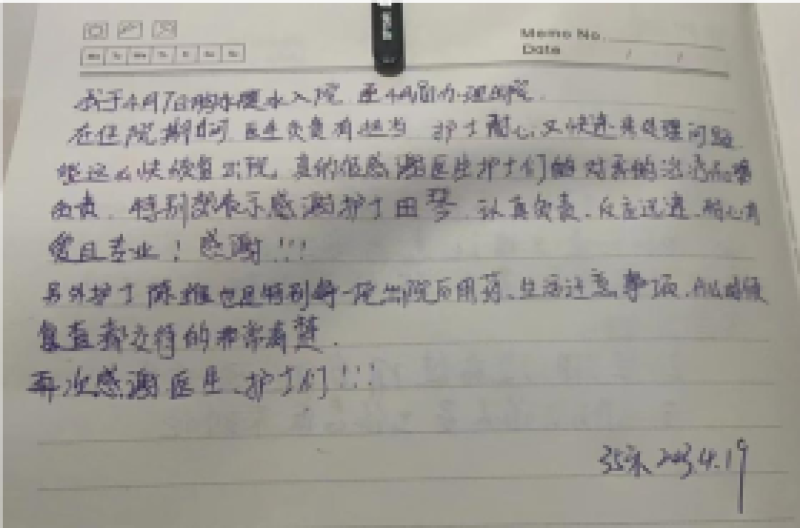 Memo No.
Date / /
Mo Tu We Th Fr Sa Su
我于4月7日 入院 4月 办理出院.
在住院期间 医生负责有担当 护士耐心又快速来处理问题
能这么快恢复出院, 真的很感谢医生护士们的对我的治疗和
负责. 特别要表示感谢护士田琴. 认真负责. 反应迅速. 耐心有
爱且专业! 感谢!!!
另外护士陈 也是特别好 出院后用药、生活注意事项.
复查都交待的非常清楚.
再次感谢医生、护士们!!!
35床 2023.4.19